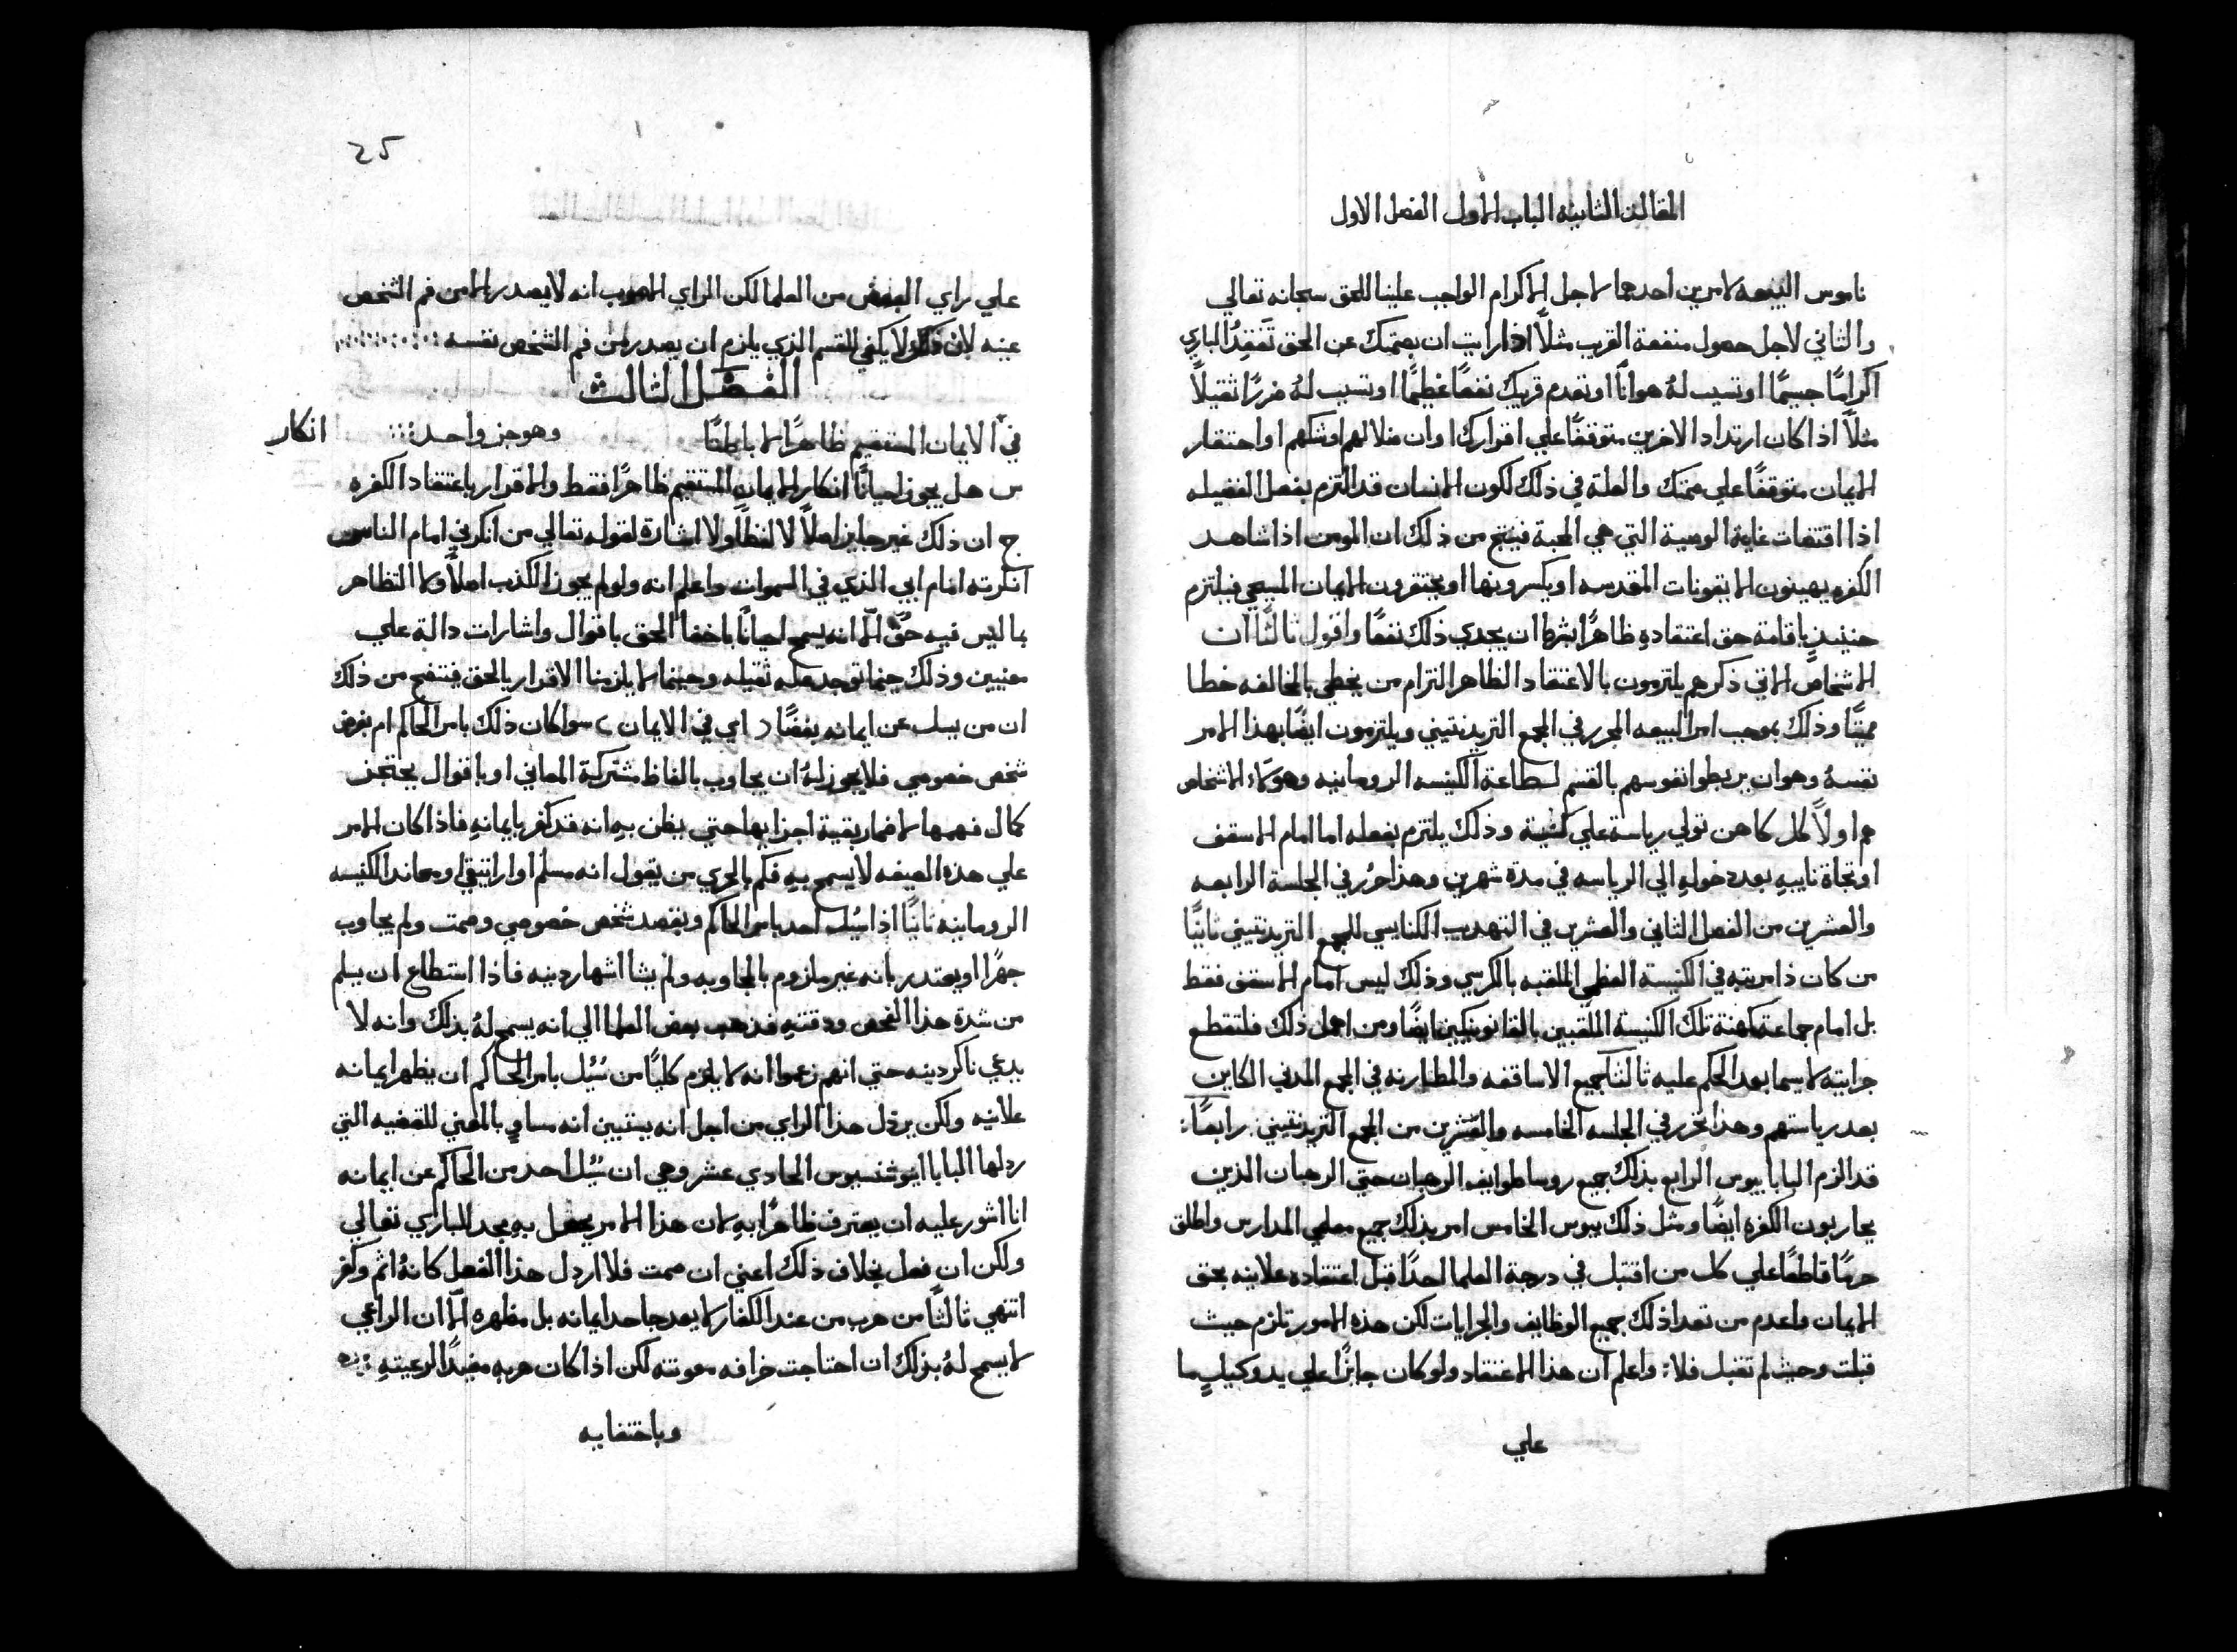 المقالة الثانيه الباب الاول الفصل الاول
ناموس البيعه لامرين احدهما لاجل الاكرام الواجب علينا للحق سبحانه تعالي
والثاني لاجل حصول منفعة القريب مثلاً اذا رايت ان بصمتك عن الحق تَفقِدُ الباري
اكرامًا جسيمًا او تسبب لهُ هوانًا او تعدم قريبك نفعًا عظيمًا او تسبب لهُ ضررًا ثقيلاً
مثلاً اذا كان ارتداد الاخرين متوقفًا علي اقرارك او ان ضلالهم او شكهم او احتقار
الايمان متوقفًا علي صمتك والعلة في ذلك لكون الانسان قد التزم بفعل الفضيله
اذا اقتضت غاية الوصية التي هي المحبة فينتج من ذلك ان المومن اذا شاهد
الكفره يهينون الايقونات المقدسه او يكسرونها او يحتقرون الايمان المسيحي فيلتزم
حينيذٍ باقامة حق اعتقادهِ ظاهرًا بشرط ان يجدي ذلك نفعًا واقول ثالثًا ان
الاشخاص الاتي ذكرهم يلتزمون بالاعتقاد الظاهر التزام من يخطي بالمخالفه خطا
مميتًا وذلك بموجب امر البيعه المحرر في المجمع التريدنتيني ويلتزمون ايضًا بهذا الامر
نفسهُ وهو ان يربطوا نفوسهم بالقسم لطاعة الكنيسه الرومانيه وهولاء الاشخاص
هم اولاً كل كاهن تولي رياسة علي كنيسة وذلك يلتزم بفعله اما امام الاسقف
او تجاه نايبهِ بعد دخولهِ الي الرياسه في مدة شهرين وهذا حُرر في الجلسة الرابعه
والعشرين من الفصل الثاني والعشرين في التهذيب الكنايسي للمجمع التريدنتيني ثانيًا
من كان ذا مرتبه في الكنيسة العظمي الملقبه بالكرسي وذلك ليس امام الاسقف فقط
بل امام جماعة كهنة تلك الكنيسة الملقبين بالقانونيكيين ايضًا ومن اهمل ذلك فلتقطع
جرايته لاسيما بعد الحكم عليه ثالثًا جميع الاساقفه والمطارنه في المجمع المدني الكاين
بعد رياستهم وهذا تحرر في الجلسه الخامسه والعشرين من المجمع التريدنتيني رابعًا:
قد الزم البابا بيوس الرابع بذلك جميع روسا طوايف الرهبان حتي الرهبان الذين
يحاربون الكفره ايضًا ومثل ذلك بيوس الخامس امر بذلك جميع معلمي المدارس واطلق
حرمًا قاطعًا علي كل من اقتبل في درجة العلما احدًا قبل اعتقاده علانيه بحق
الايمان واعدم من تعدا ذلك جميع الوظايف والجرايات لكن هذه الامور تلزم حيث
قبلت وحيث لم تقبل فلا: واعلم ان هذا الاعتقاد ولو كان جايزًا علي يد وكيلٍ ما
علي
25
علي راي البعض من العلما لكن الراي الاصوب انه لا يصدر الا من فم الشخص
عينه لان ذلك لا يكفي للقسم الذي يلزم ان يصدر من فم الشخص نفسه
الفصل الثالث
في الايمان المستقيم ظاهرًا لا باطنًا وهو جز واحد
انكار
س هل يجوز احيانًا انكار الايمان المستقيم ظاهرًا فقط والاقرار باعتقاد الكفره
ج ان ذلك غير جايز اصلاً لا لفظًا ولا اشارة لقوله تعالي من انكرني امام الناس
انكرته امام ابي الذي في السموات واعلم انه ولو لم يجوز الكذب اصلاً ولا التظاهر
بما ليس فيه حقٌ الّا انه يسمح احيانًا باخفا الحق باقوال واشارات دالة علي
معنيين وذلك حينما توجد عله ثقيله وحينما لا يلزمنا الاقرار بالحق فينتج من ذلك
ان من يسل عن ايمانه بغضًا (اي في الايمان) سوا كان ذلك بامر الحاكم ام بغرض
شخص خصوصي فلا يجوز لهُ ان يجاوب بالفاظ مشتركة المعاني او باقوال يحتجز
كمال فهمها لاضمار بقية اجزايها حتي يظن بهِ انه قد كفر بايمانهِ فاذا كان الامر
علي هذه الصيغه لا يسمح بهِ فكم بالحري من يقول انه مسلم او اراتيقي او معاند الكنيسه
الرومانيه ثانيًا اذا سُيل احد بامر الحاكم وبقصد شخص خصوصي وصمت ولم يجاوب
جهرًا او يعتدر بانه غير ملزوم بالمجاوبه ولم يشا اشهار دينه فاذا استطاع ان يسلم
من شدة هذا الفحص ودقتهِ فذهب بعض العلما الي انه يسمح لهُ بذلك وانه لا
يدعي ناكر دينه حتي انهم زعموا انه لا يلزم كليًا من سُيل بامر الحاكم ان يظهر ايمانه
علانيه ولكن يردل هذا الراي من اجل انه يستبين انه مساوٍ بالمعني للقضيه التي
ردلها البابا اينوشنسيوس الحادي عشر وهي ان سُيل احد من الحاكم عن ايمانه
انا اشور عليه ان يعترف ظاهرًا بهِ لان هذا الامر يحصل بهِ مجد للباري تعالي
ولكن ان فعل بخلاف ذلك اعني ان صمت فلا اردل هذا الفعل كانهُ اثم وكفر
انتهي ثالثًا من هرب من عند الكفار لا يعد جاحد ايمانه بل مظهره الّا ان الراعي
لا يسمح لهُ بذلك ان احتاجت خرافه معونته لكن اذا كان هربه مفيدًا لرعيتهِ
وباختفايه